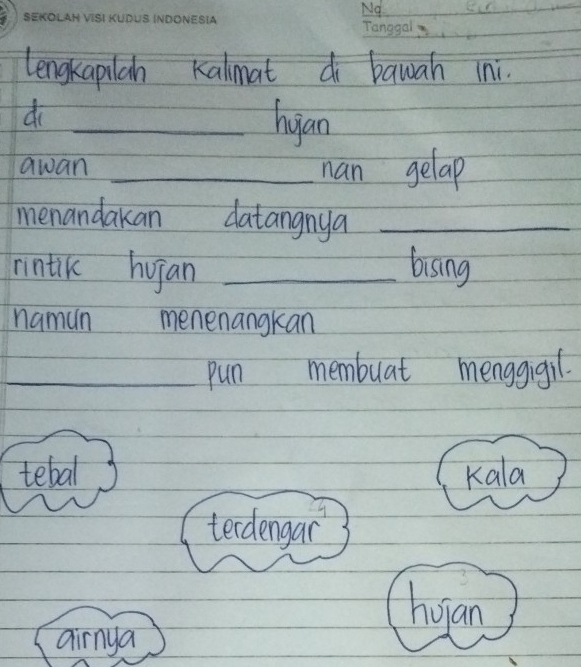 SEKOLAH VISI KUDUS INDONESIA
No.
Tanggal
Lengkapilah kalimat di bawah ini.
di ____________ hujan
awan ____________ nan gelap
menandakan datangnya ____________
rintik hujan ____________ bising
namun menenangkan
____________ pun membuat menggigil.
tebal
kala
terdengar
hujan
airnya